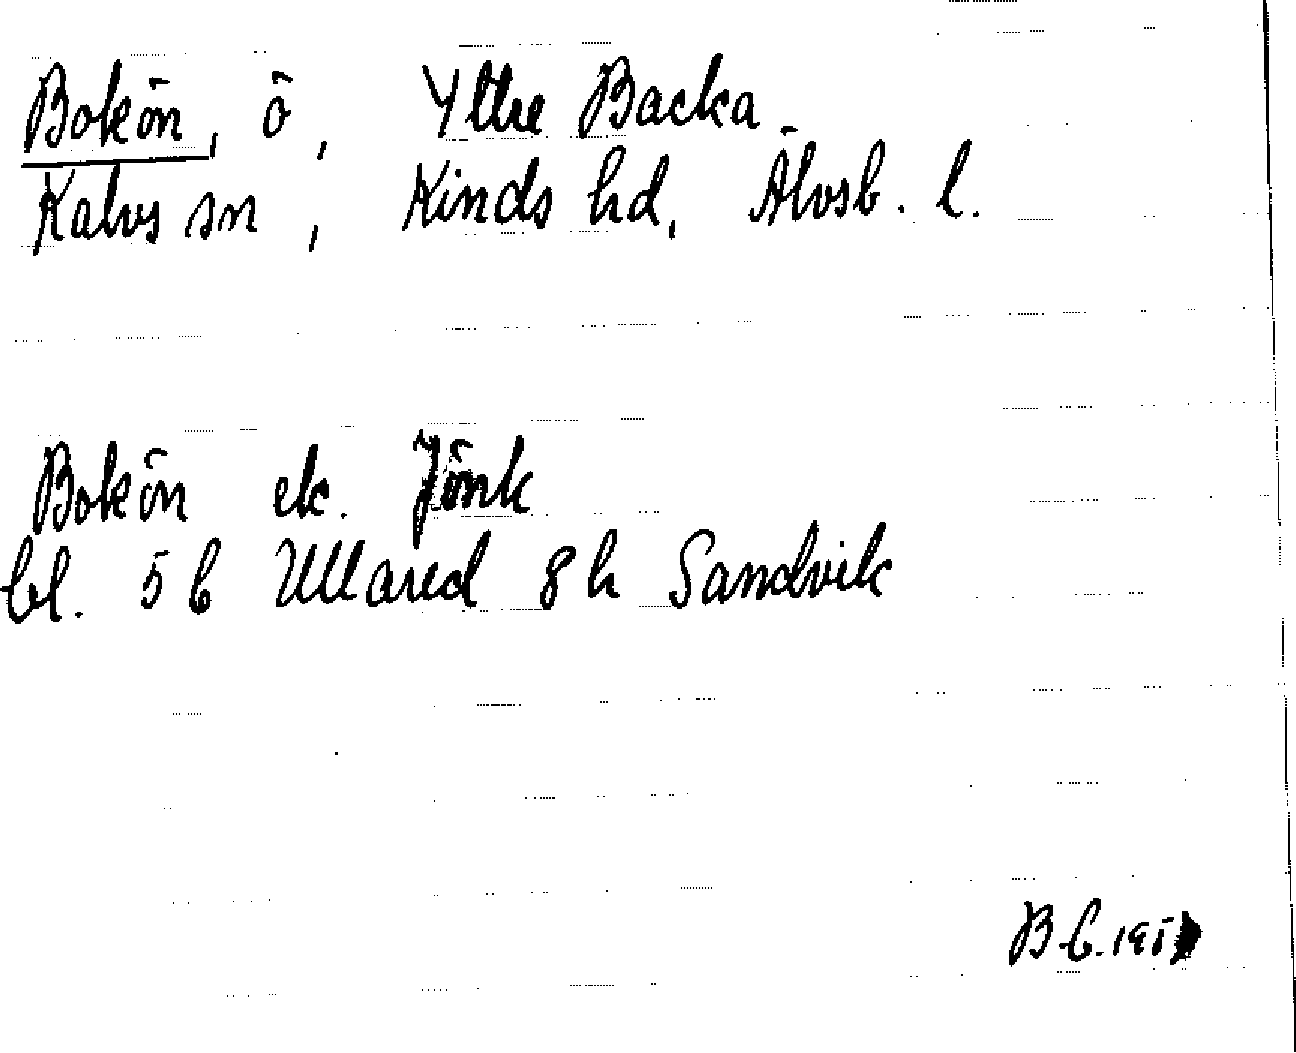 Bokön, ö, Yttre Backa
Kalvs sn, Kinds hd, Älvsb. l.
Bokön ek. Jönk
bl. 56 Ullared 8h Sandvik